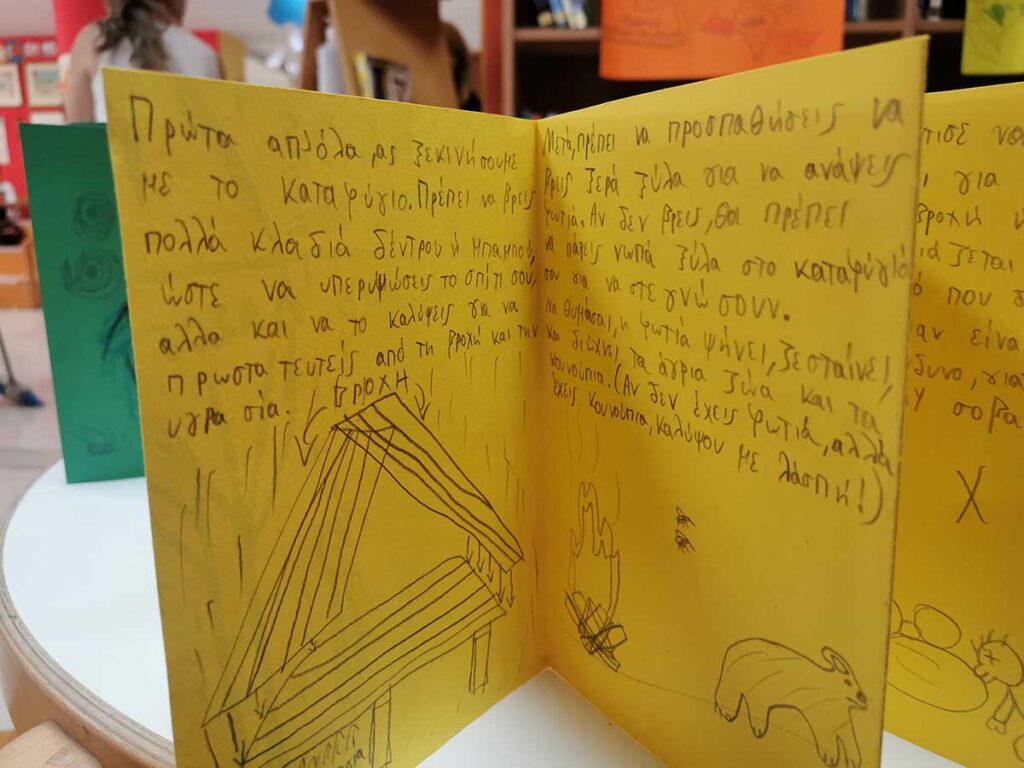 Πρώτα απ'όλα, ας ξεκινήσουμε
με το καταφύγιο. Πρέπει να βρεις
πολλά κλαδιά δέντρου ή μπαμπού,
ώστε να υπερυψώσεις το σπίτι σου,
αλλα και να το καλύψεις για να
πρωστατευτείς από τη βροχή και την
υγρασία.
ΒΡΟΧΗ
Μετά, πρέπει να προσπαθήσεις να
βρεις ξερά ξύλα για να ανάψεις
φωτιά. Αν δεν βρεις, θα πρέπει
να πάρεις νωπά ξύλα στο καταφύγιό
σου για να στεγνώσουν.
Να θυμάσαι, η φωτιά ψήνει, ζεσταίνει,
και διώχνει τα άγρια ζώα και τα
κουνούπια. (Αν δεν έχεις φωτιά, αλλά
έχεις κουνούπια, καλύψου με λάσπη!)
να
, για
βροχή
που
είνα
για
σοβα
Χ